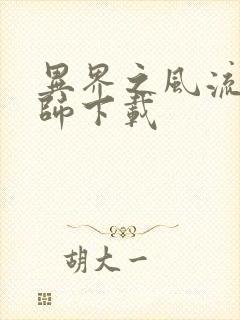 異界之風流
師下載
胡大一